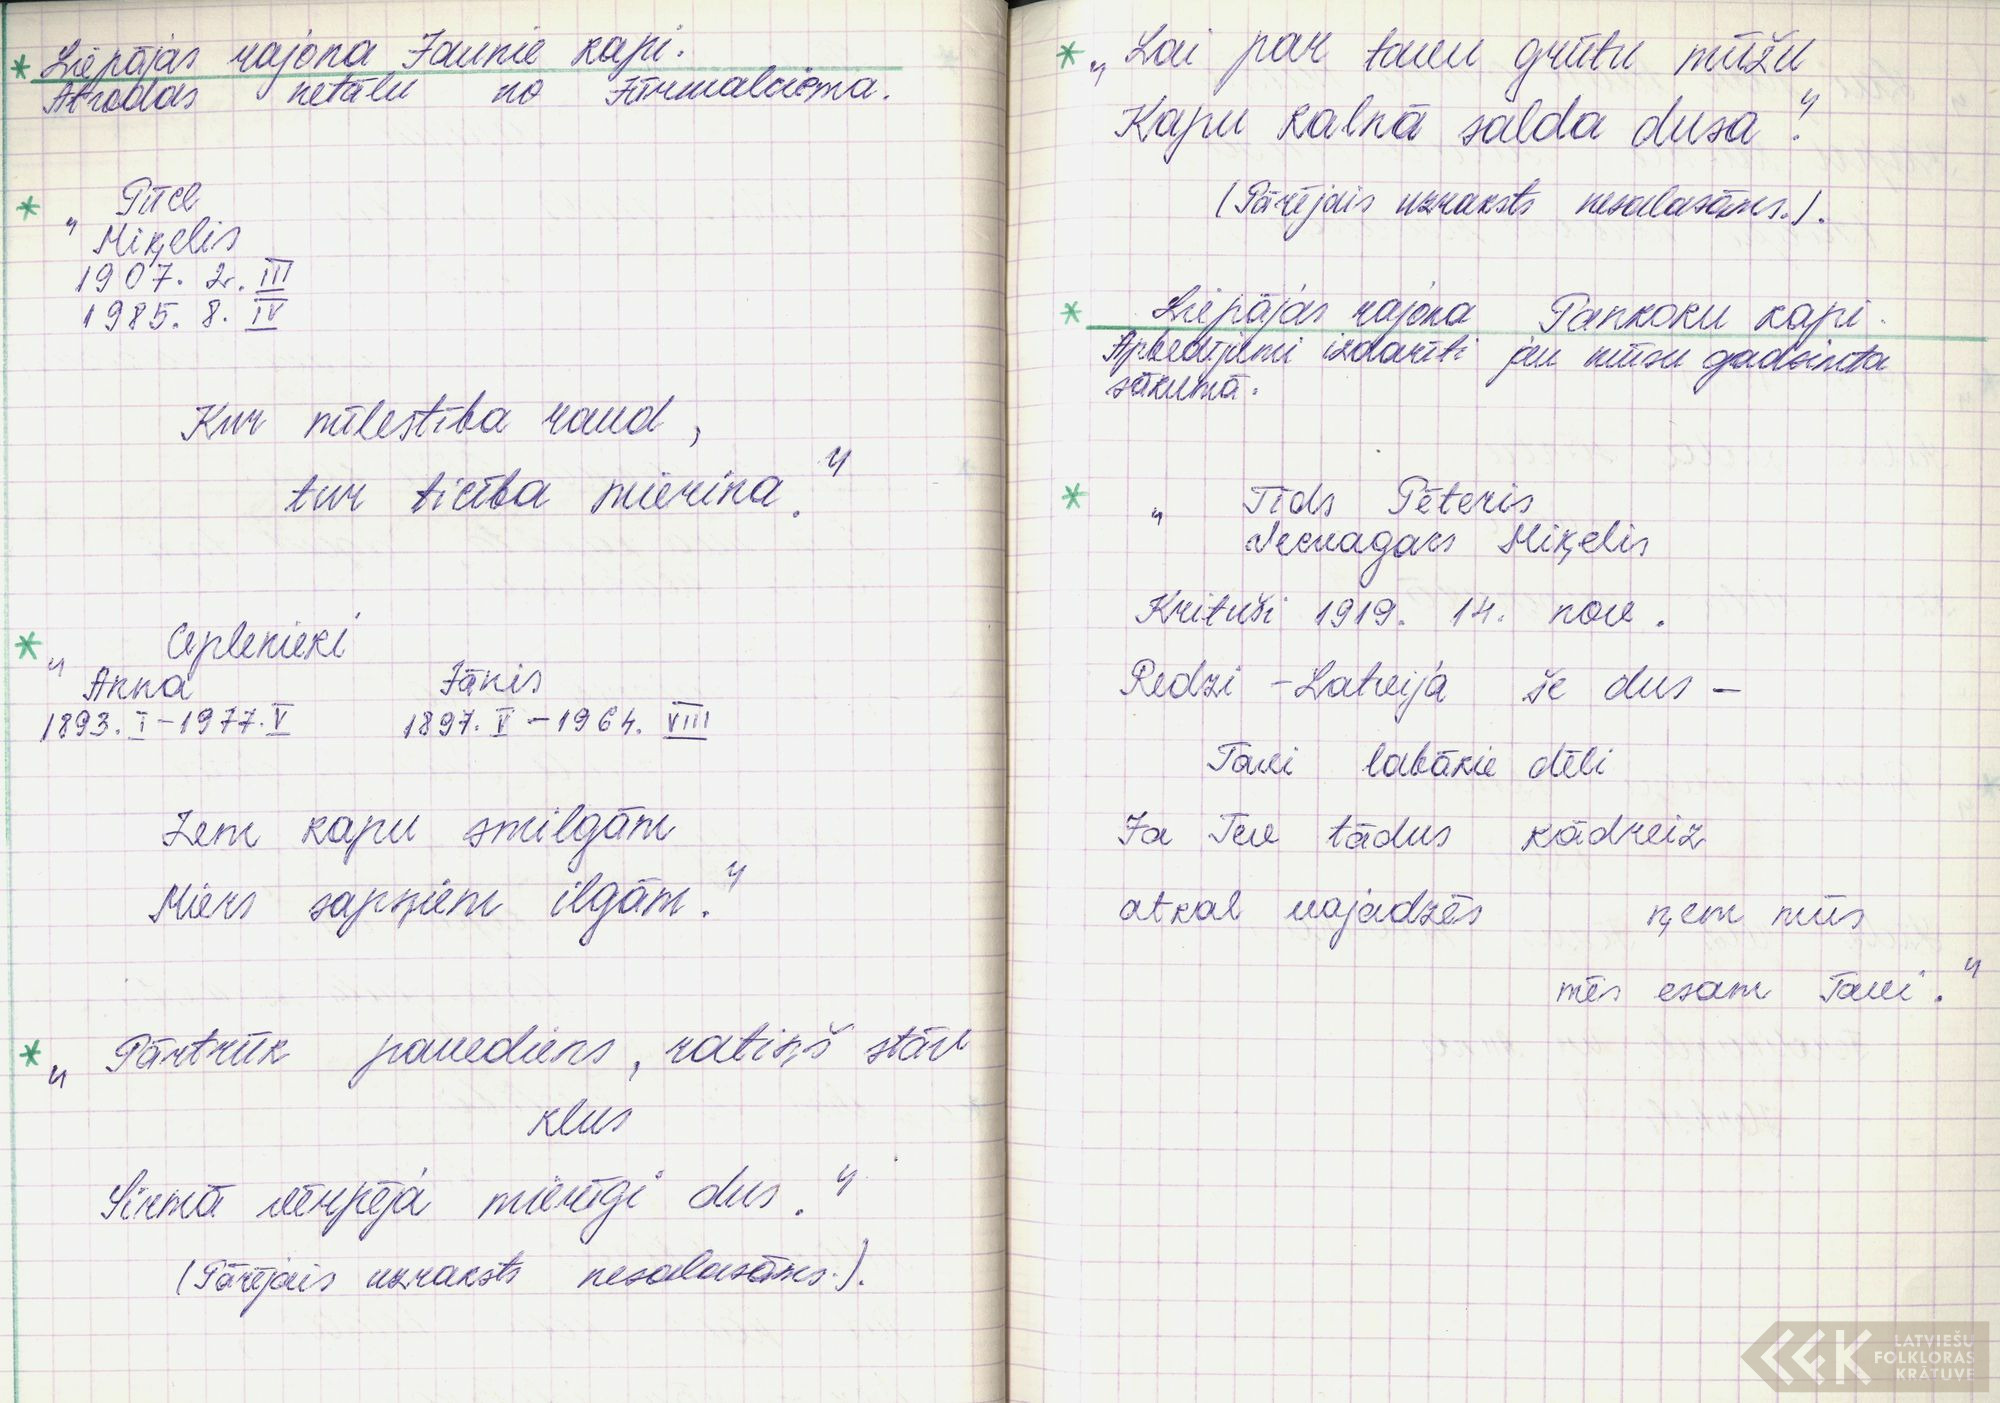 * Liepājas rajona Jaunie kapi.
Atrodas netālu no Jūrmalciema.
* „ Pūce
Miķelis
1907. 2. III
1985. 8. IV
Kur mīlestība raud,
tur ticība mierina."
* „ Ceplenieki
Anna Jānis
1893. I – 1977. V 1897. V – 1964. VIII
Zem kapu smilgām
Miers sapņiem ilgām."
* „ Pārtrūk pavediens, ratiņš stāv
klus
Sirmā vērpēja mierīgi dus."
(Pārējais uzraksts nesalasāms.).
* „ Lai par tavu grūtu mūžu
Kapu kalnā salda dusa!"
(Pārējais uzraksts nesalasāms.).
* Liepājas rajona Pankoku kapi.
Apbedījumi izdarīti jau mūsu gadsimta
sākumā.
* „ Tīds Pēteris
Vecvagars Miķelis
Krituši 1919. 14. nov.
Redzi – Latvija še dus –
Tavi labākie dēli
Ja Tev tādus kādreiz
atkal vajadzēs ņem mūs
mēs esam Tavi."
LATVIEŠU
FOLKLORAS
KRĀTUVE